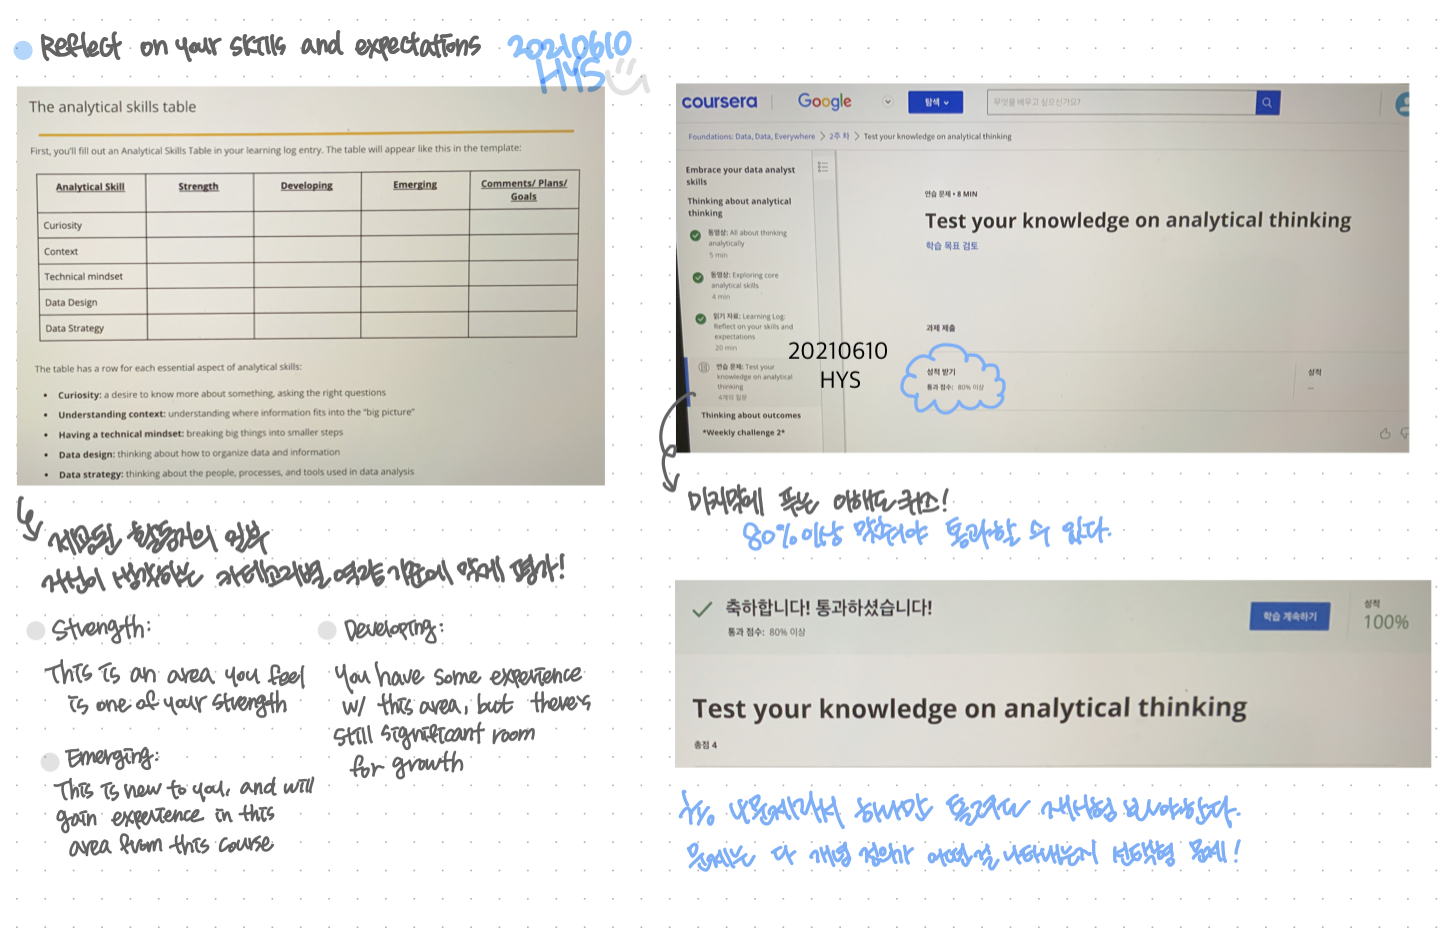 Reflect on your skills and expectations
20210610
HYS
The analytical skills table
First, you'll fill out an Analytical Skills Table in your learning log entry. The table will appear like this in the template:
Analytical Skill Strength Developing Emerging Comments/ Plans/ Goals
Curiosity
Context
Technical mindset
Data Design
Data Strategy
The table has a row for each essential aspect of analytical skills:
• Curiosity: a desire to know more about something, asking the right questions
• Understanding context: understanding where information fits into the "big picture"
• Having a technical mindset: breaking big things into smaller steps
• Data design: thinking about how to organize data and information
• Data strategy: thinking about the people, processes, and tools used in data analysis
제공된 활동지의 일부
자신이 생각하는 카테고리별 역량 기준에 맞게 평가!
Strength:
This is an area you feel
is one of your strength
Developing:
You have some experience
w/ this area, but there's
still significant room
for growth
Emerging:
This is new to you, and will
gain experience in this
area from this course
coursera Google 탐색 무엇을 배우고 싶으신가요?
Foundations: Data, Data, Everywhere > 2주 차 > Test your knowledge on analytical thinking
Embrace your data analyst
skills
Thinking about analytical
thinking
동영상: All about thinking
analytically
5 min
동영상: Exploring core
analytical skills
4 min
읽기 자료: Learning Log:
Reflect on your skills and
expectations
20 min
연습 문제: Test your
knowledge on analytical
thinking
4개의 질문
Thinking about outcomes
*Weekly challenge 2*
연습 문제 • 8 MIN
Test your knowledge on analytical thinking
학습 목표 검토
과제 제출
20210610
HYS
성적 받기
통과 점수: 80% 이상
성적
--
마지막에 푸는 이해도 퀴즈!
80%이상 맞춰야 통과할 수 있다.
축하합니다! 통과하셨습니다!
통과 점수: 80% 이상
학습 계속하기
성적
100%
Test your knowledge on analytical thinking
총점 4
총 4문제라서 하나만 틀려도 재시험 봐야한다.
문제는 다 개념 정의가 어떤걸 나타내는지 선택형 문제!